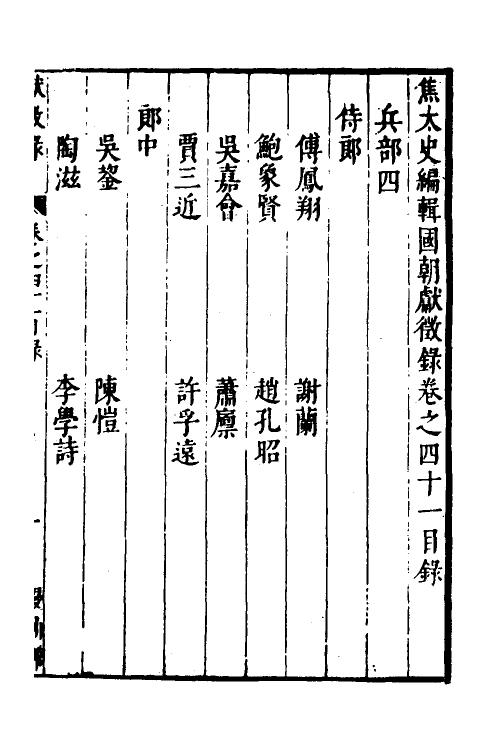 焦太史編輯國朝獻徵錄卷之四十一目錄
兵部四
侍郎
傅鳳翔 謝蘭
鮑象賢 趙孔昭
吳嘉會 蕭廩
賈三近 許孚遠
郎中
吳鋆 陳愷
陶滋 李學詩